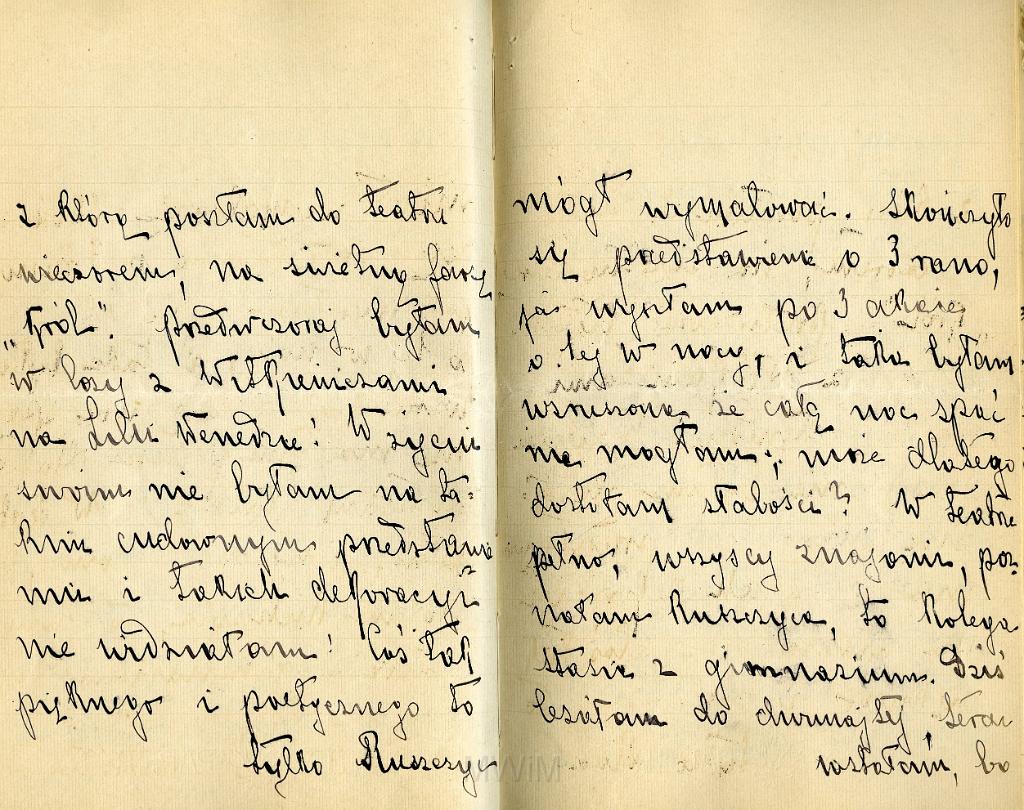 z którą poszłam do teatru
wieczorem, na świetną farsę
„Król". Przedwczoraj byłam
w loży z Wittgeniczami
na Lilli Wenedzie! W życiu
swoim nie byłam na ta-
kim cudownym przedstawie
niu i takich dekoracyi
nie widziałam! Coś tak
pięknego i poetycznego to
tylko Ruszczyc
mógł wymalować. Skończyło
się przedstawienie o 3 rano,
ja wyszłam po 3 akcie,
o 1ej w nocy, i taka byłam
wzruszona że całą noc spać
nie mogłam; może dlatego
dostałam słabości? W teatrze
pełno, wszyscy znajomi, poz-
nałam Ruszczyca, to kolega
Stasia z gimnazium. Dziś
leżałam do dwunastej, teraz
wstałam, bo